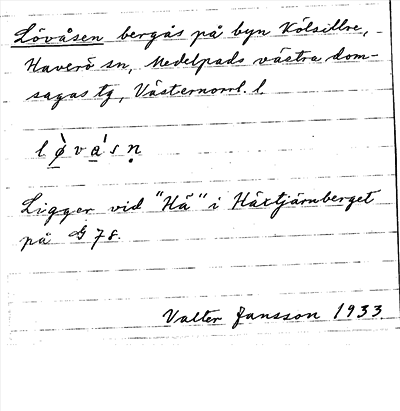 Lövåsen bergås på byn Kölsillre,
Haverö sn, Medelpads västra dom-
sagas tg, Västernorrl. l.
l ø̀ v a ́ s n̥
Ligger vid "Hä" i Häxtjärnberget
på G 78.
Valter Jansson 1933.